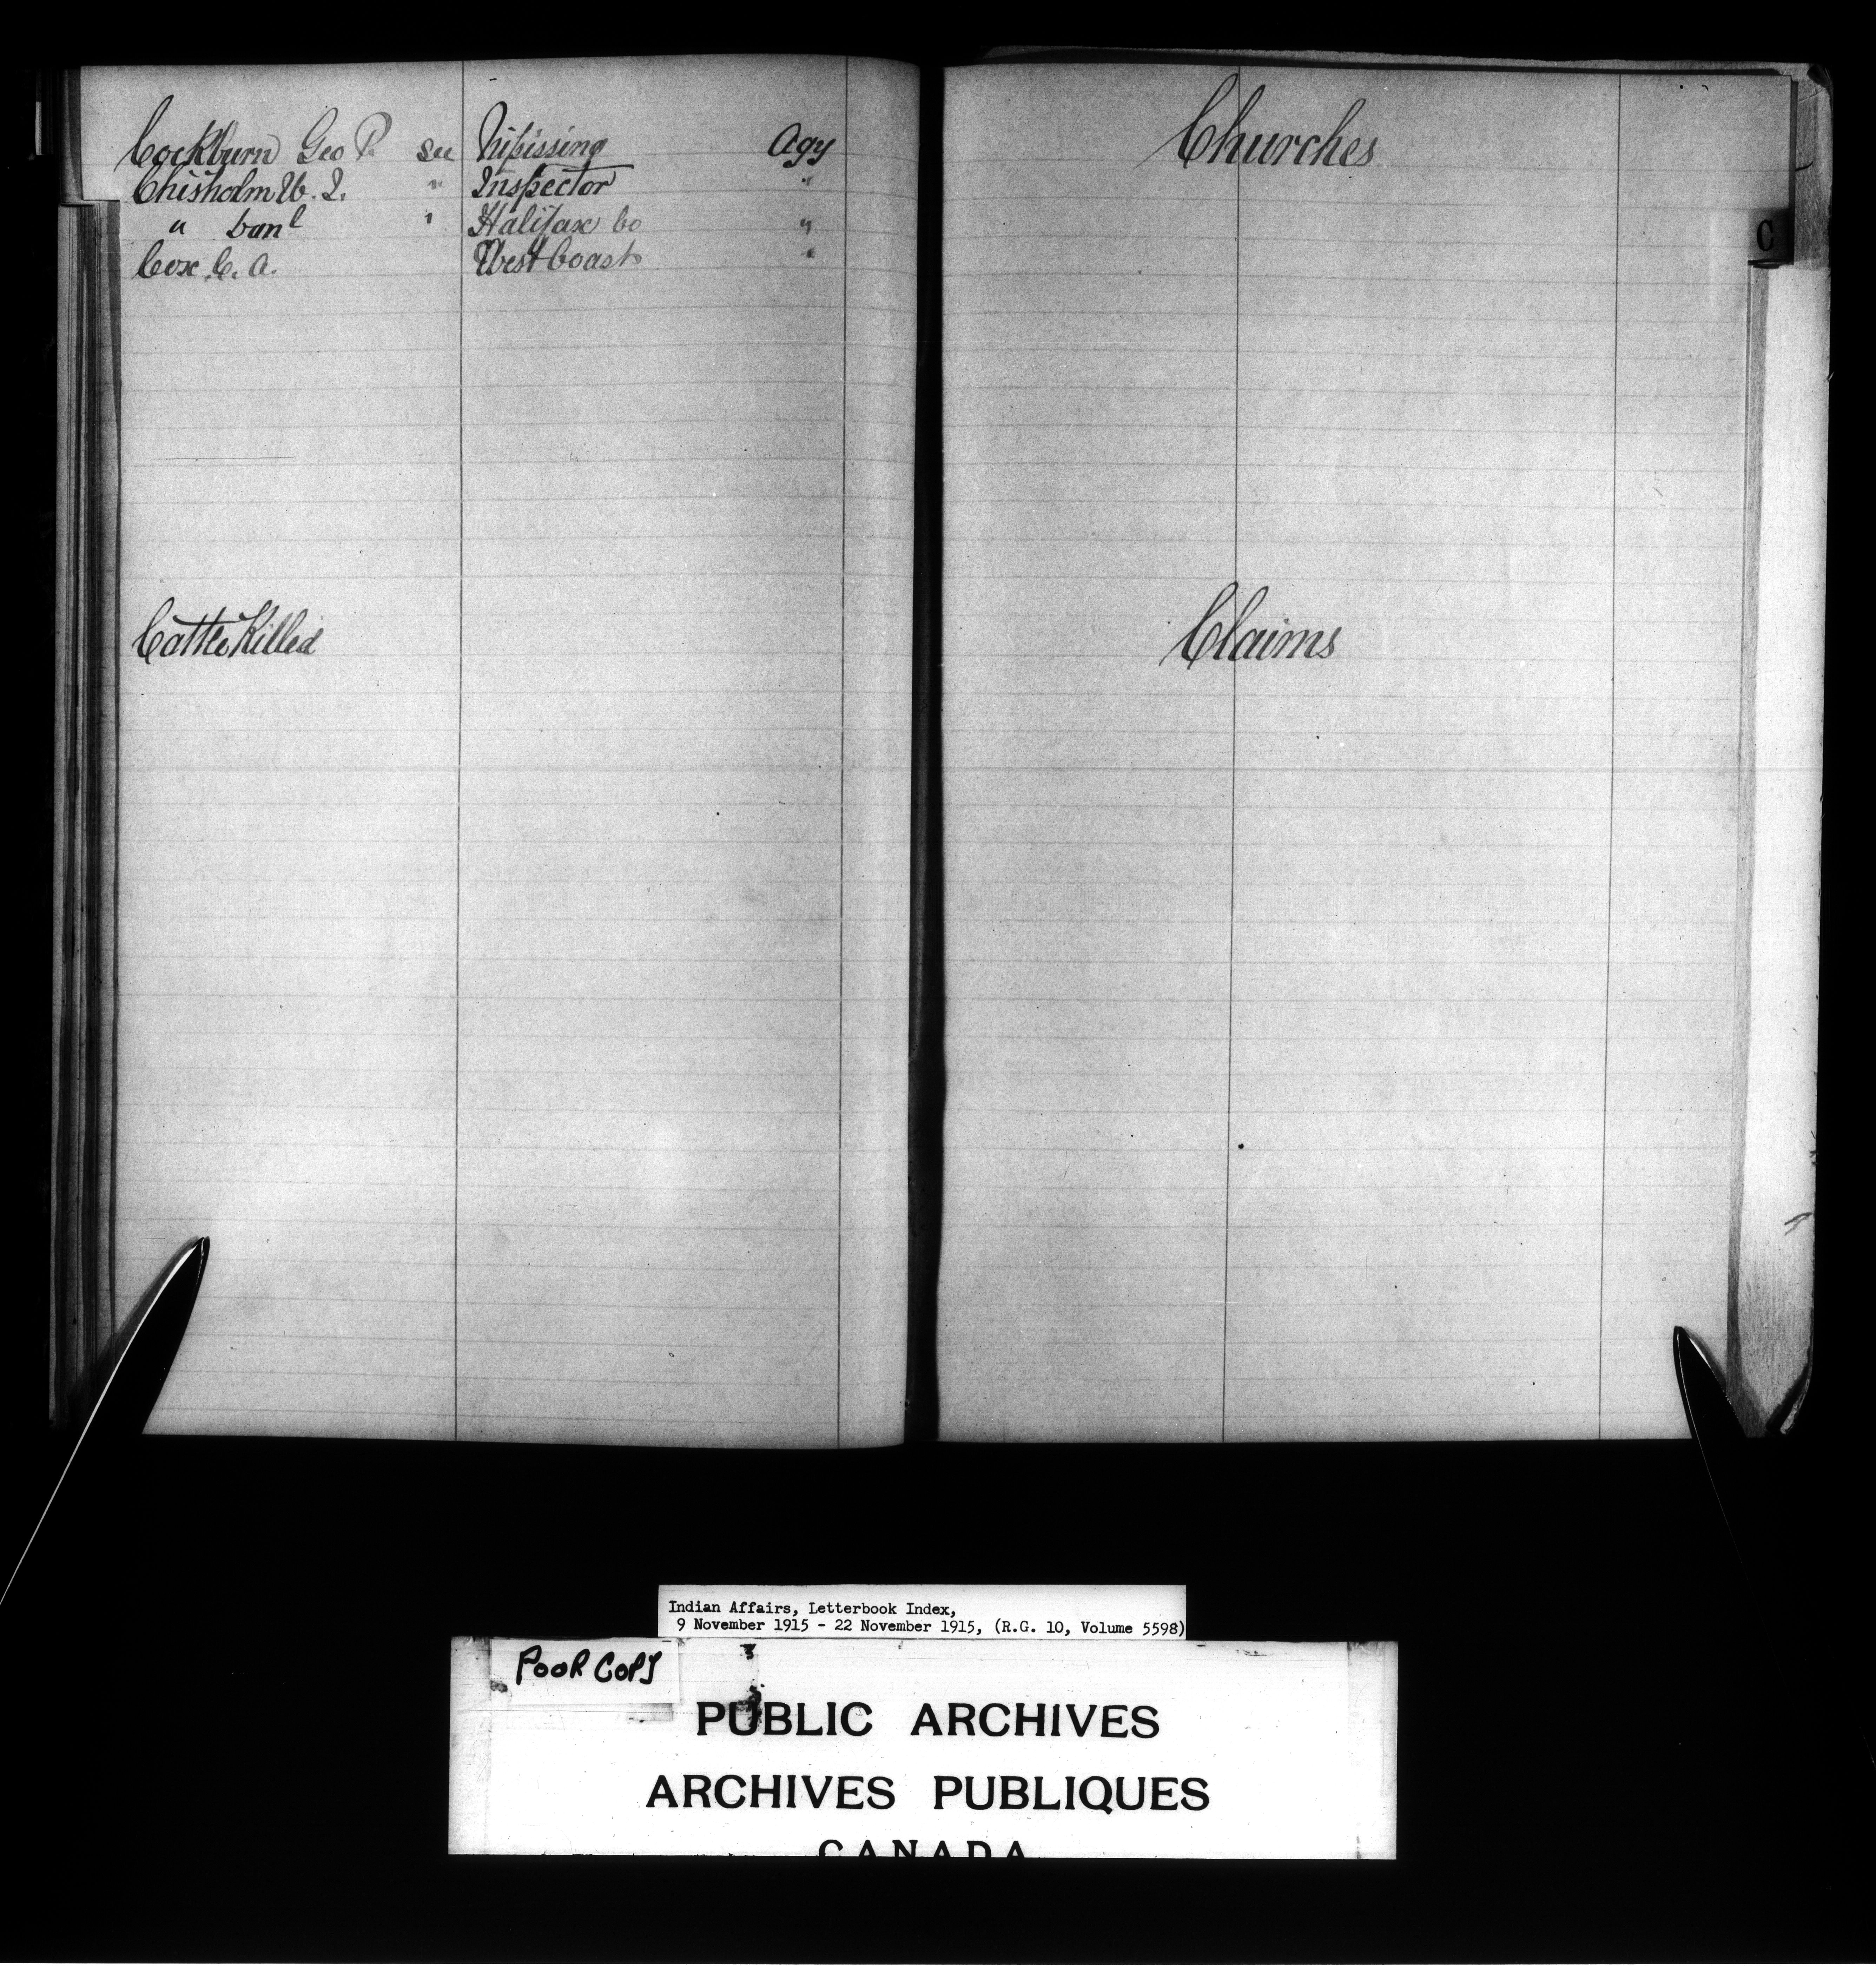 Cockburn Geo P. see Nipissing Agy
Chisholm W. J. " Inspector "
" Danl " Halifax Co "
Cox C. A. West Coast "
Cattle Killed
Churches
C
Claims
Indian Affairs, Letterbook Index,
9 November 1915 - 22 November 1915, (R.G. 10, Volume 5598)
POOR COPY
PUBLIC ARCHIVES
ARCHIVES PUBLIQUES
CANADA